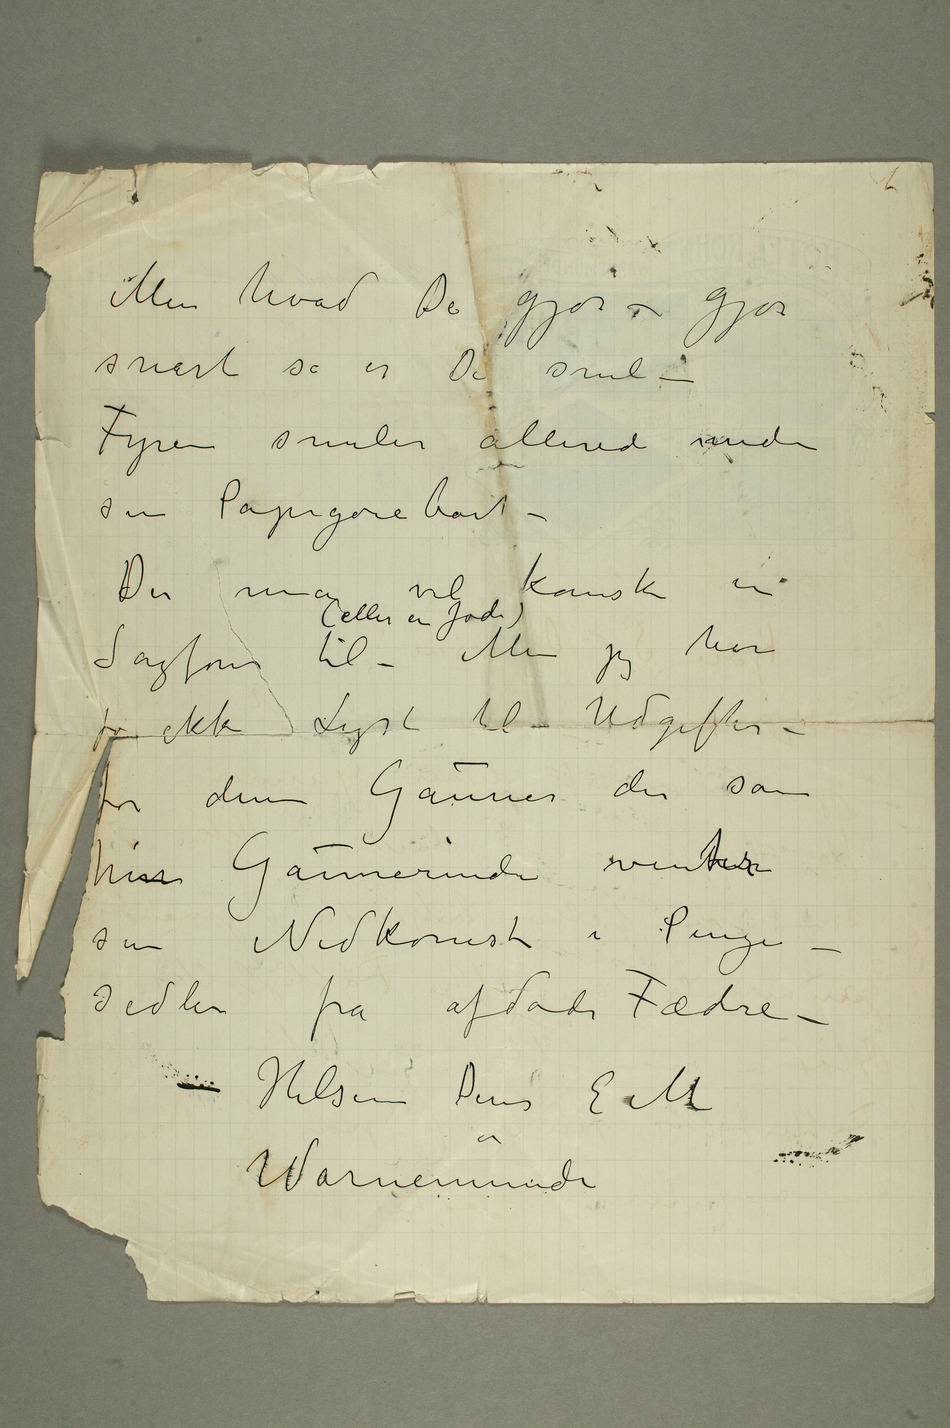 Men hvad De gjør – gjør
snart så er De snil –
Fyren smiler allered under
sin Papegøiebart –
Der må vel kanske en
(eller en Jøde)
Sagfører til – Men jeg har
jo ikke Lyst til Udgifter –
for denne Gauner der som
hin Gaunerinde venter
sin Nedkomst i Penge –
sedler fra afdøde Fædre –
– Hilsen Deres E M
Warnemünde